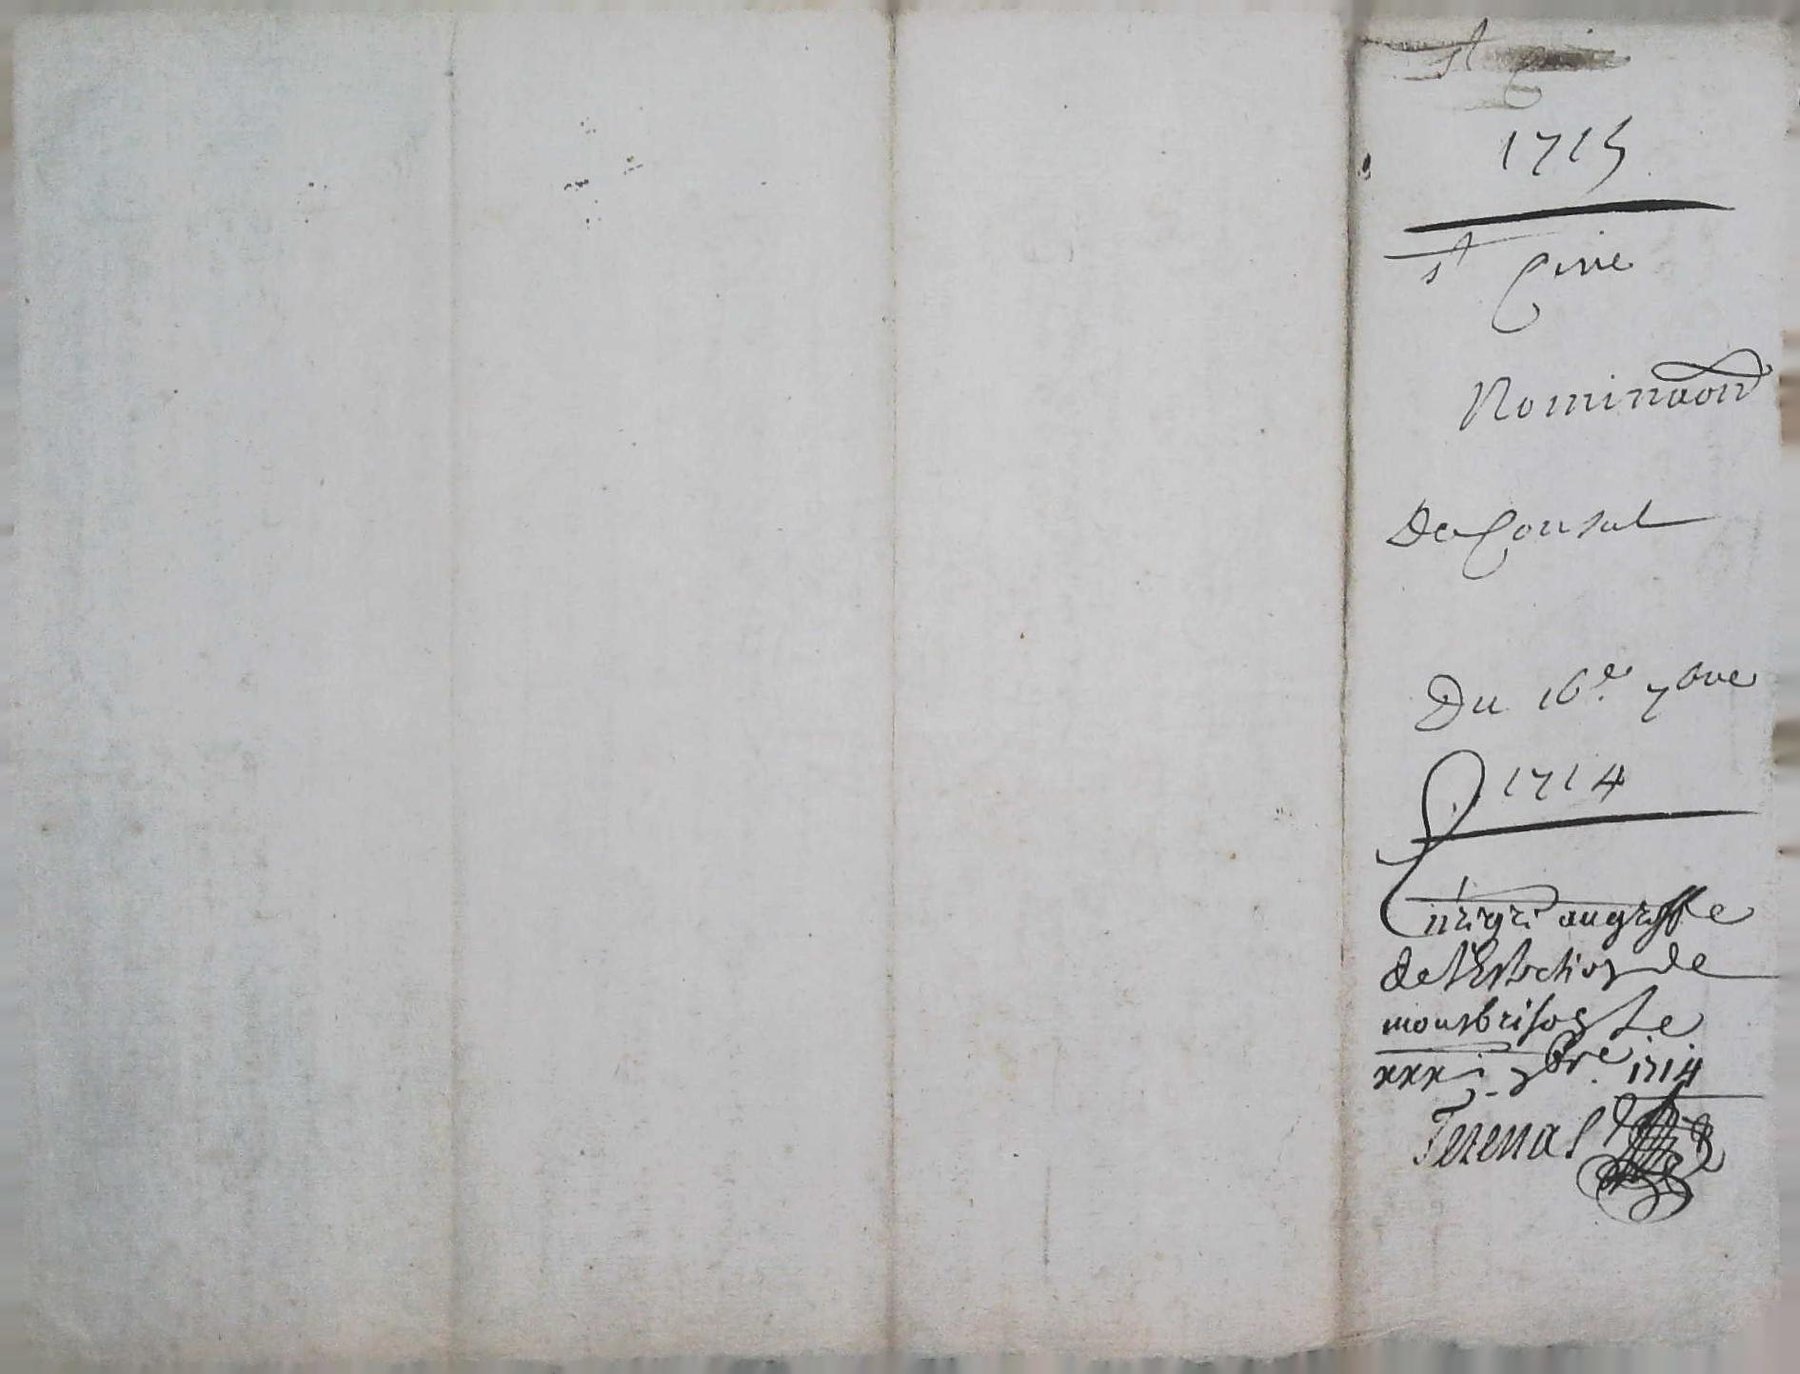 st
1715
st Cire
Nominaon
De Consul
Du 16e 7bre
1714
Enrgre au greffe
de l'Eslection de
monbrison Le
xxxj 7bre 1714